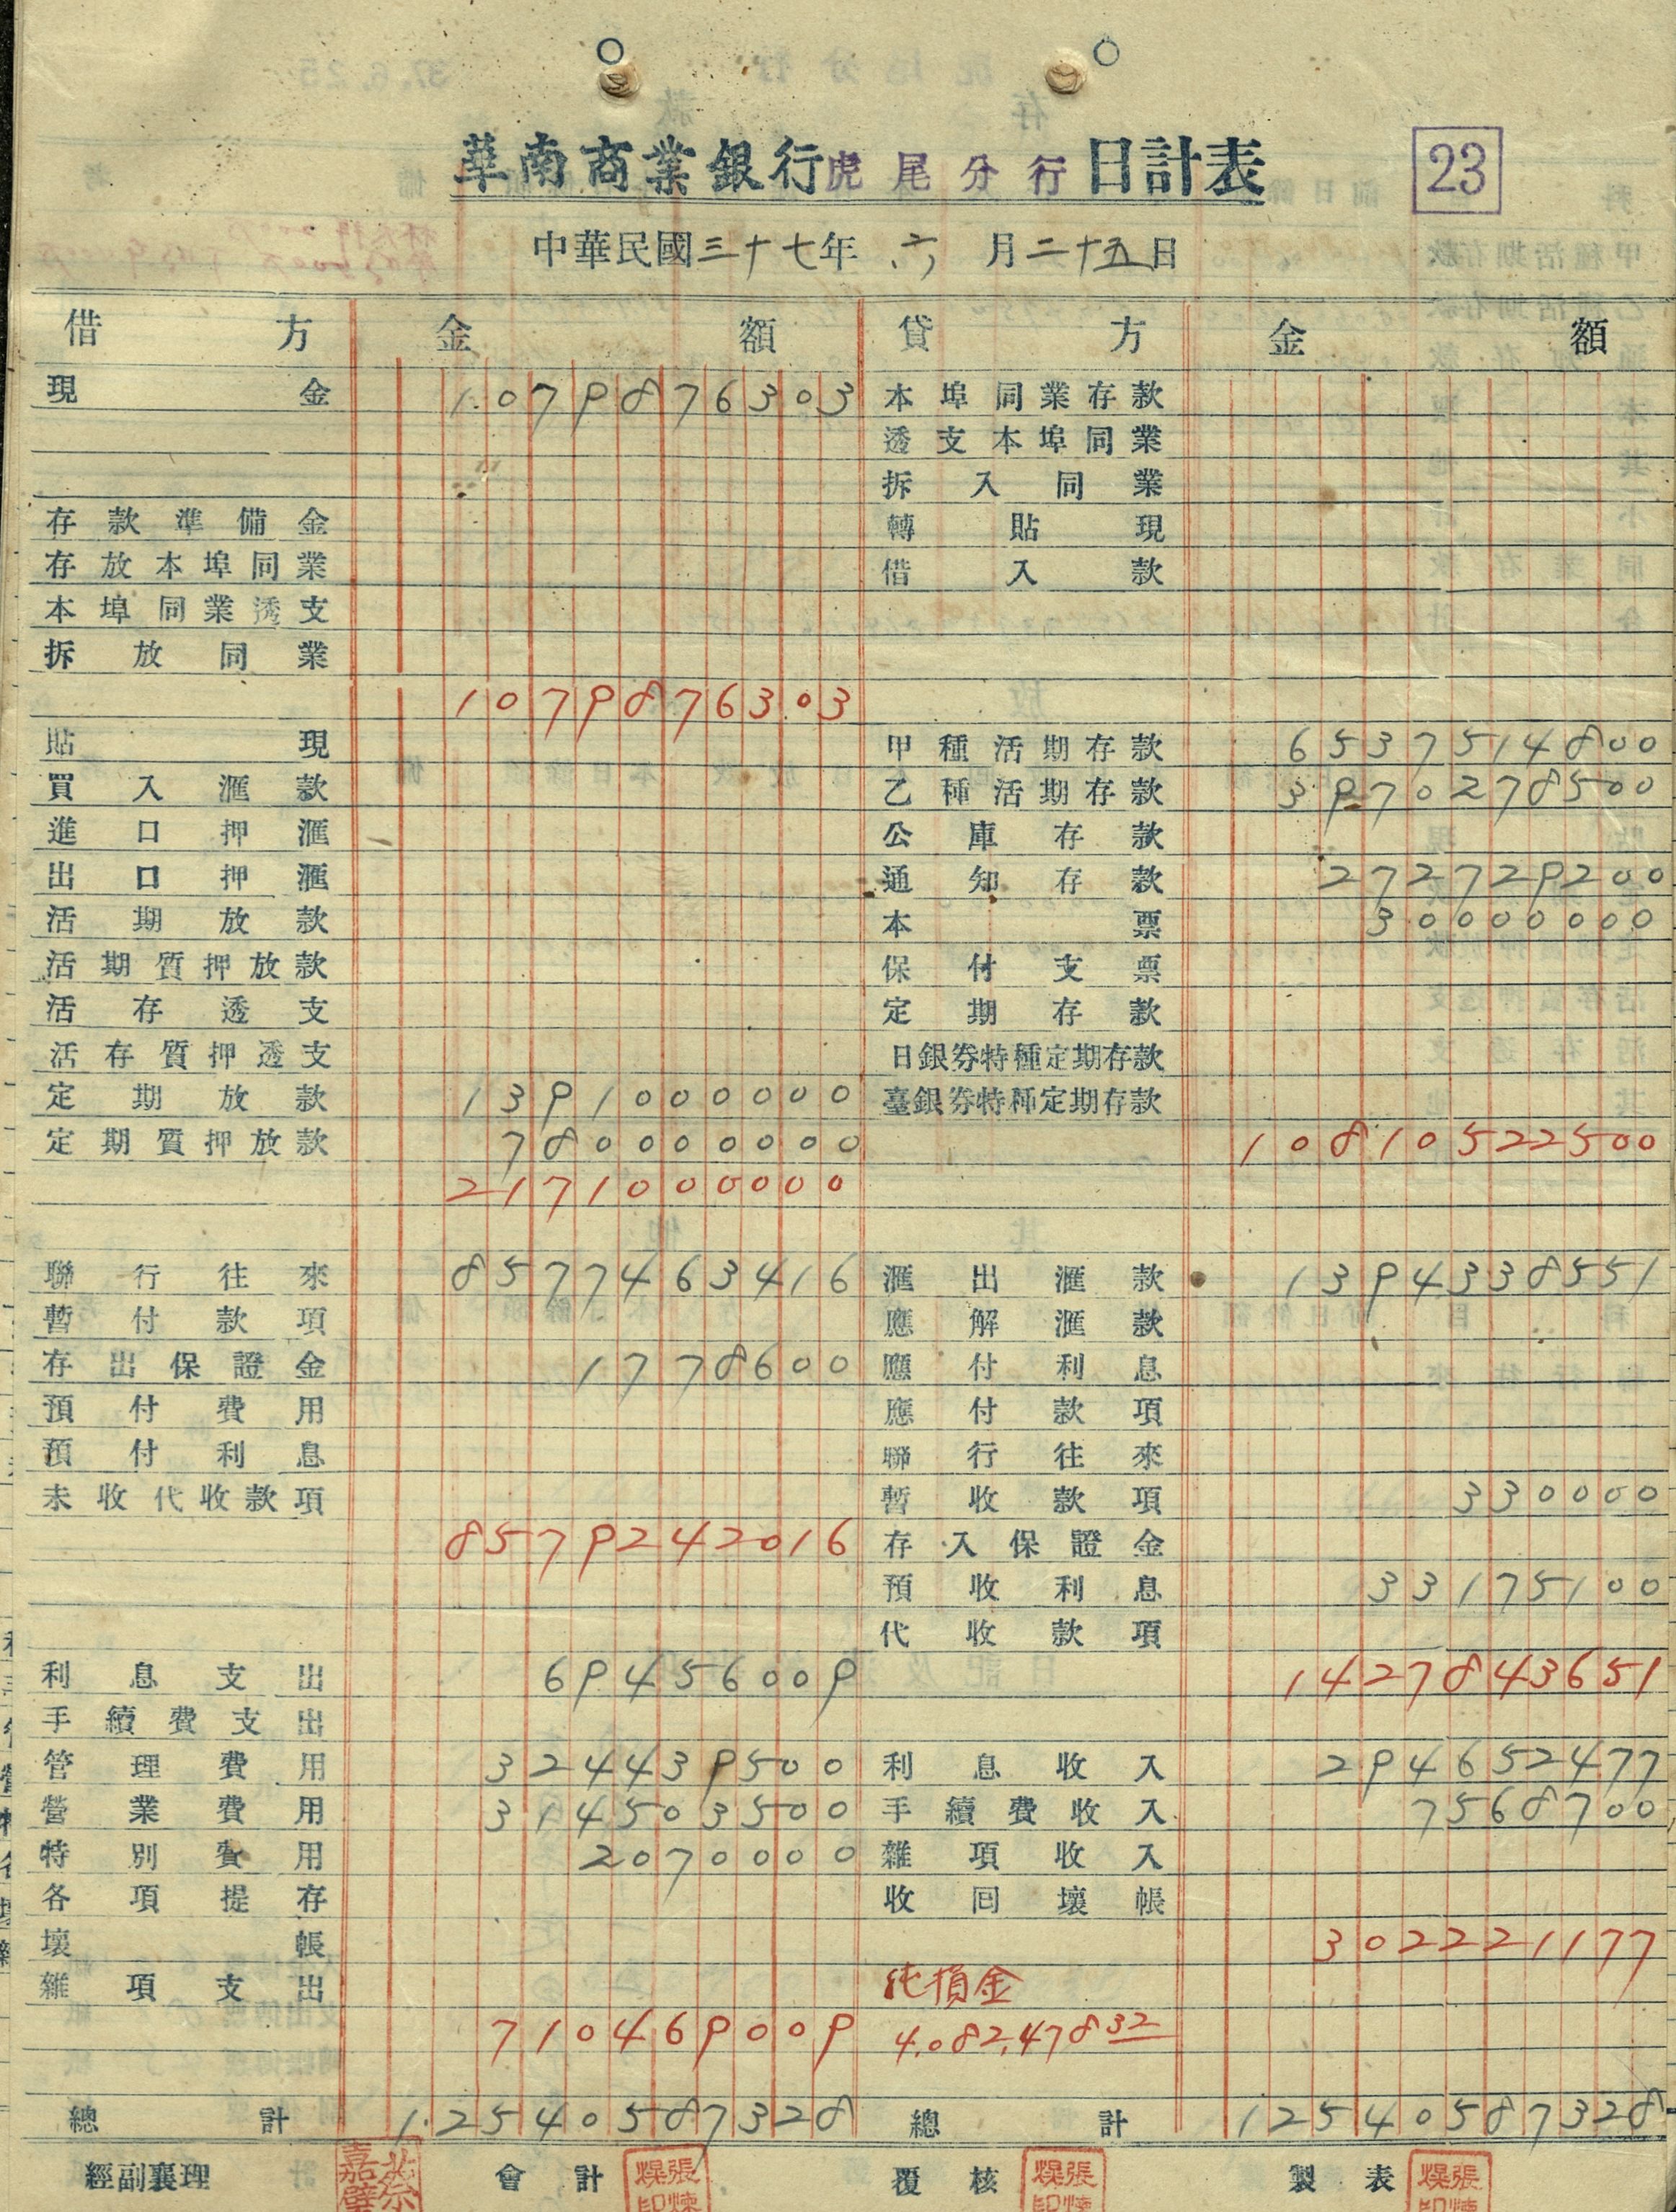 華南商業銀行虎尾分行日計表
23
中華民國三十七年六月二十五日
借方 金額 貸方 金額
現金 1079876303 本埠同業存款
透支本埠同業
拆入同業
存款準備金 轉貼現
存放本埠同業 借入款
本埠同業透支
拆放同業
1079876303
貼現 甲種活期存款 6537514800
買入滙款 乙種活期存款 3970278500
進口押滙 公庫存款
出口押滙 通知存款 272729200
活期放款 本票 30000000
活期質押放款 保付支票
活存透支 定期存款
活存質押透支 日銀券特種定期存款
定期放款 1391000000 臺銀券特種定期存款
定期質押放款 780000000 10810522500
2171000000
聯行往來 8577463416 滙出滙款 1394338551
暫付款項 應解滙款
存出保證金 1778600 應付利息
預付費用 應付款項
預付利息 聯行往來
未收代收款項 暫收款項 330000
8579242016 存入保證金
預收利息 33175100
代收款項
利息支出 69456009 1427843651
手續費支出
管理費用 324439500 利息收入 294652477
營業費用 314503500 手續費收入 7568700
特別費用 2070000 雜項收入
各項提存 收回壞帳
壞帳 302221177
雜項支出 純損金
710469009 4,082,478 32
總計 12540587328 總計 12540587328
經副襄理 會計 覆核 製表